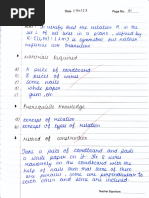 Date
Page No. 01
Aim: To verify that the relation R in the
set L of all lines in a plane, defined by
R = {(l, m) : l ⊥ m} is symmetric but neither
reflexive nor transitive
Materials Required
A piece of cardboard
pieces of wires
nails
white paper
glue etc.
Prerequisite Knowledge
Concept of relation
Concept of types of relation
Method of construction
Take a piece of cardboard and paste
a white paper on it. Fix
wires randomly on the cardboard with
the help of nails such that some of
them are parallel, some are perpendicular
to each other and some are inclined
Teacher Signature: